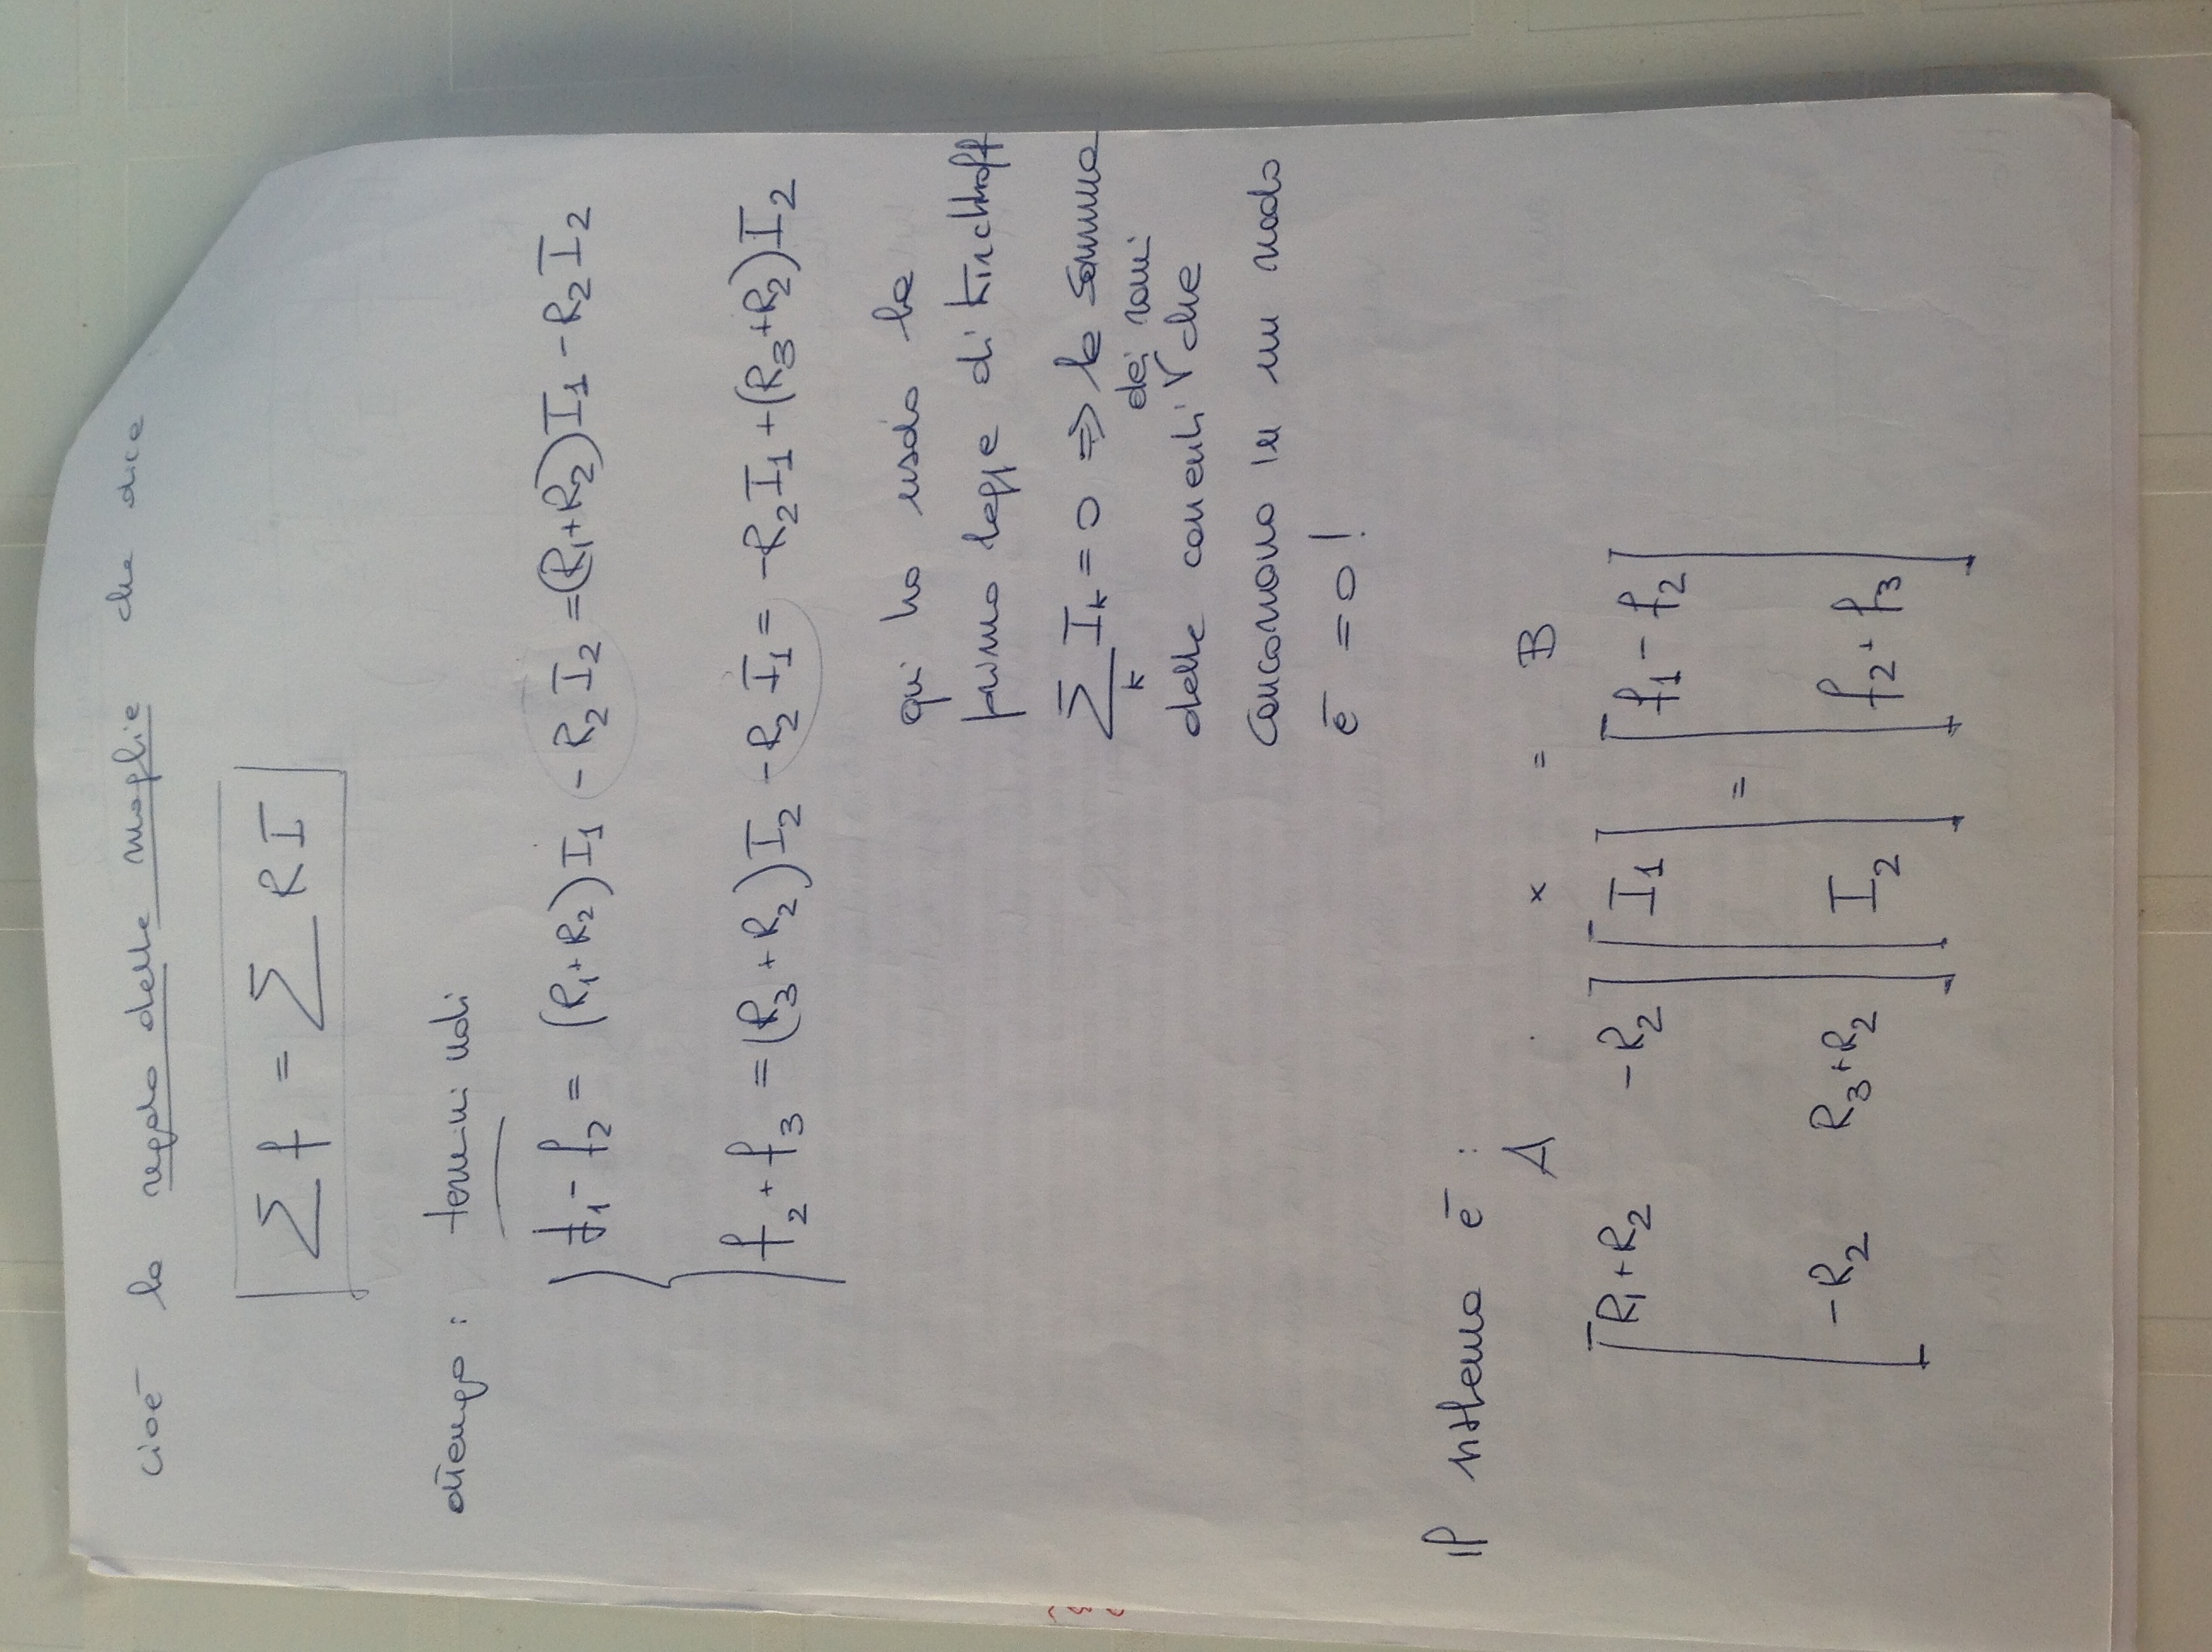 cioè la regola delle maglie che dice
∑ f = ∑ R I
ottengo : termini noti
f₁ - f₂ = (R₁+R₂) I₁ - R₂ I₂ = (R₁+R₂) I₁ - R₂ I₂
f₂ + f₃ = (R₃+R₂) I₂ - R₂ I₁ = -R₂ I₁ + (R₃+R₂) I₂
qui ho usato la
prima legge di Kirchhoff
∑ₖ Iₖ = 0 ⇒ la somma
dei rami
delle correnti che
concorrono in un nodo
è = 0 !
Il sistema è :
A · x = B
[R₁+R₂ -R₂] [I₁] = [f₁ - f₂]
[-R₂ R₃+R₂] [I₂] [f₂ + f₃]